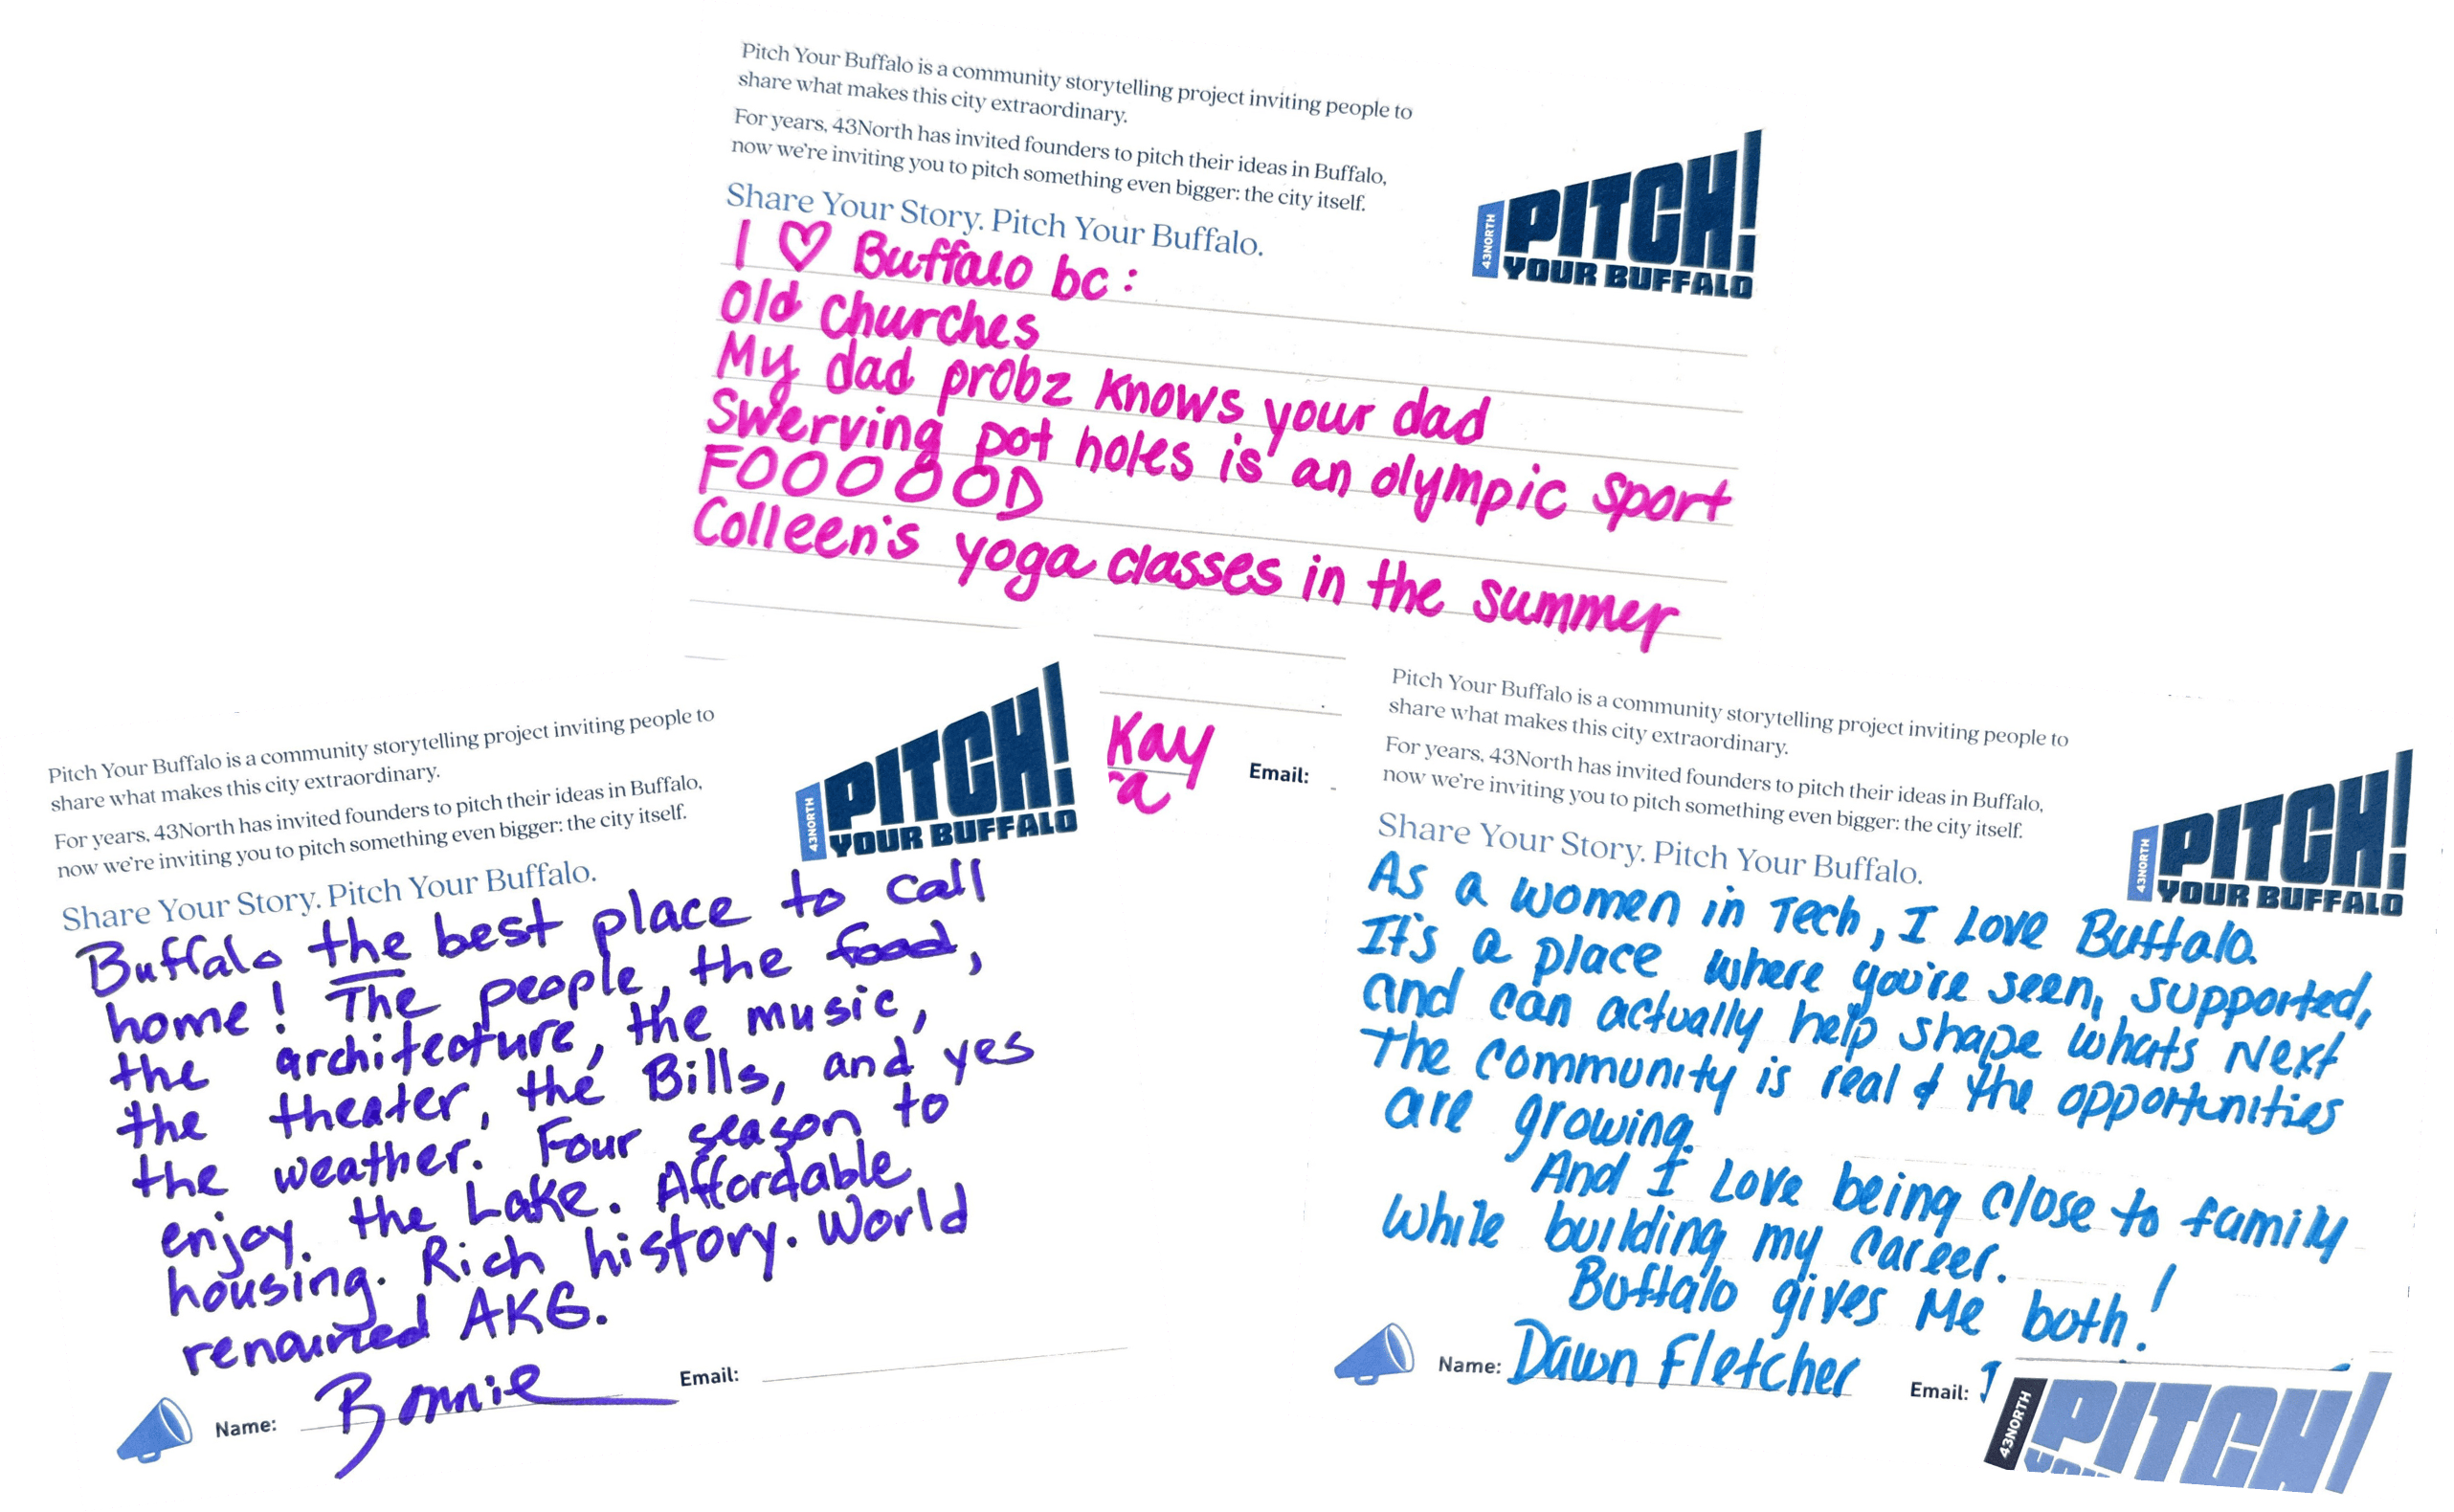 Pitch Your Buffalo is a community storytelling project inviting people to
share what makes this city extraordinary.
For years, 43North has invited founders to pitch their ideas in Buffalo,
now we're inviting you to pitch something even bigger: the city itself.
Share Your Story. Pitch Your Buffalo.
43NORTH
PITCH!
YOUR BUFFALO
I ♡ Buffalo bc:
Old Churches
My dad probz knows your dad
Swerving pot holes is an olympic sport
FOOOOOD
Colleen's yoga classes in the summer
Kay
Email:
Pitch Your Buffalo is a community storytelling project inviting people to
share what makes this city extraordinary.
For years, 43North has invited founders to pitch their ideas in Buffalo,
now we're inviting you to pitch something even bigger: the city itself.
Share Your Story. Pitch Your Buffalo.
43NORTH
PITCH!
YOUR BUFFALO
Buffalo the best place to call
home! The people, the food,
the architecture, the music,
the theater, the Bills, and yes
the weather! Four season to
enjoy. the Lake. Affordable
housing. Rich history. World
renowned AKG.
Name: Bonnie
Email:
Pitch Your Buffalo is a community storytelling project inviting people to
share what makes this city extraordinary.
For years, 43North has invited founders to pitch their ideas in Buffalo,
now we're inviting you to pitch something even bigger: the city itself.
Share Your Story. Pitch Your Buffalo.
43NORTH
PITCH!
YOUR BUFFALO
As a women in Tech, I Love Buffalo.
It's a place where you're seen, supported,
and can actually help shape whats Next
The community is real & the opportunities
are growing.
And I Love being close to family
while building my career.
Buffalo gives Me both!
Name: Dawn Fletcher
Email:
43NORTH
PITCH!